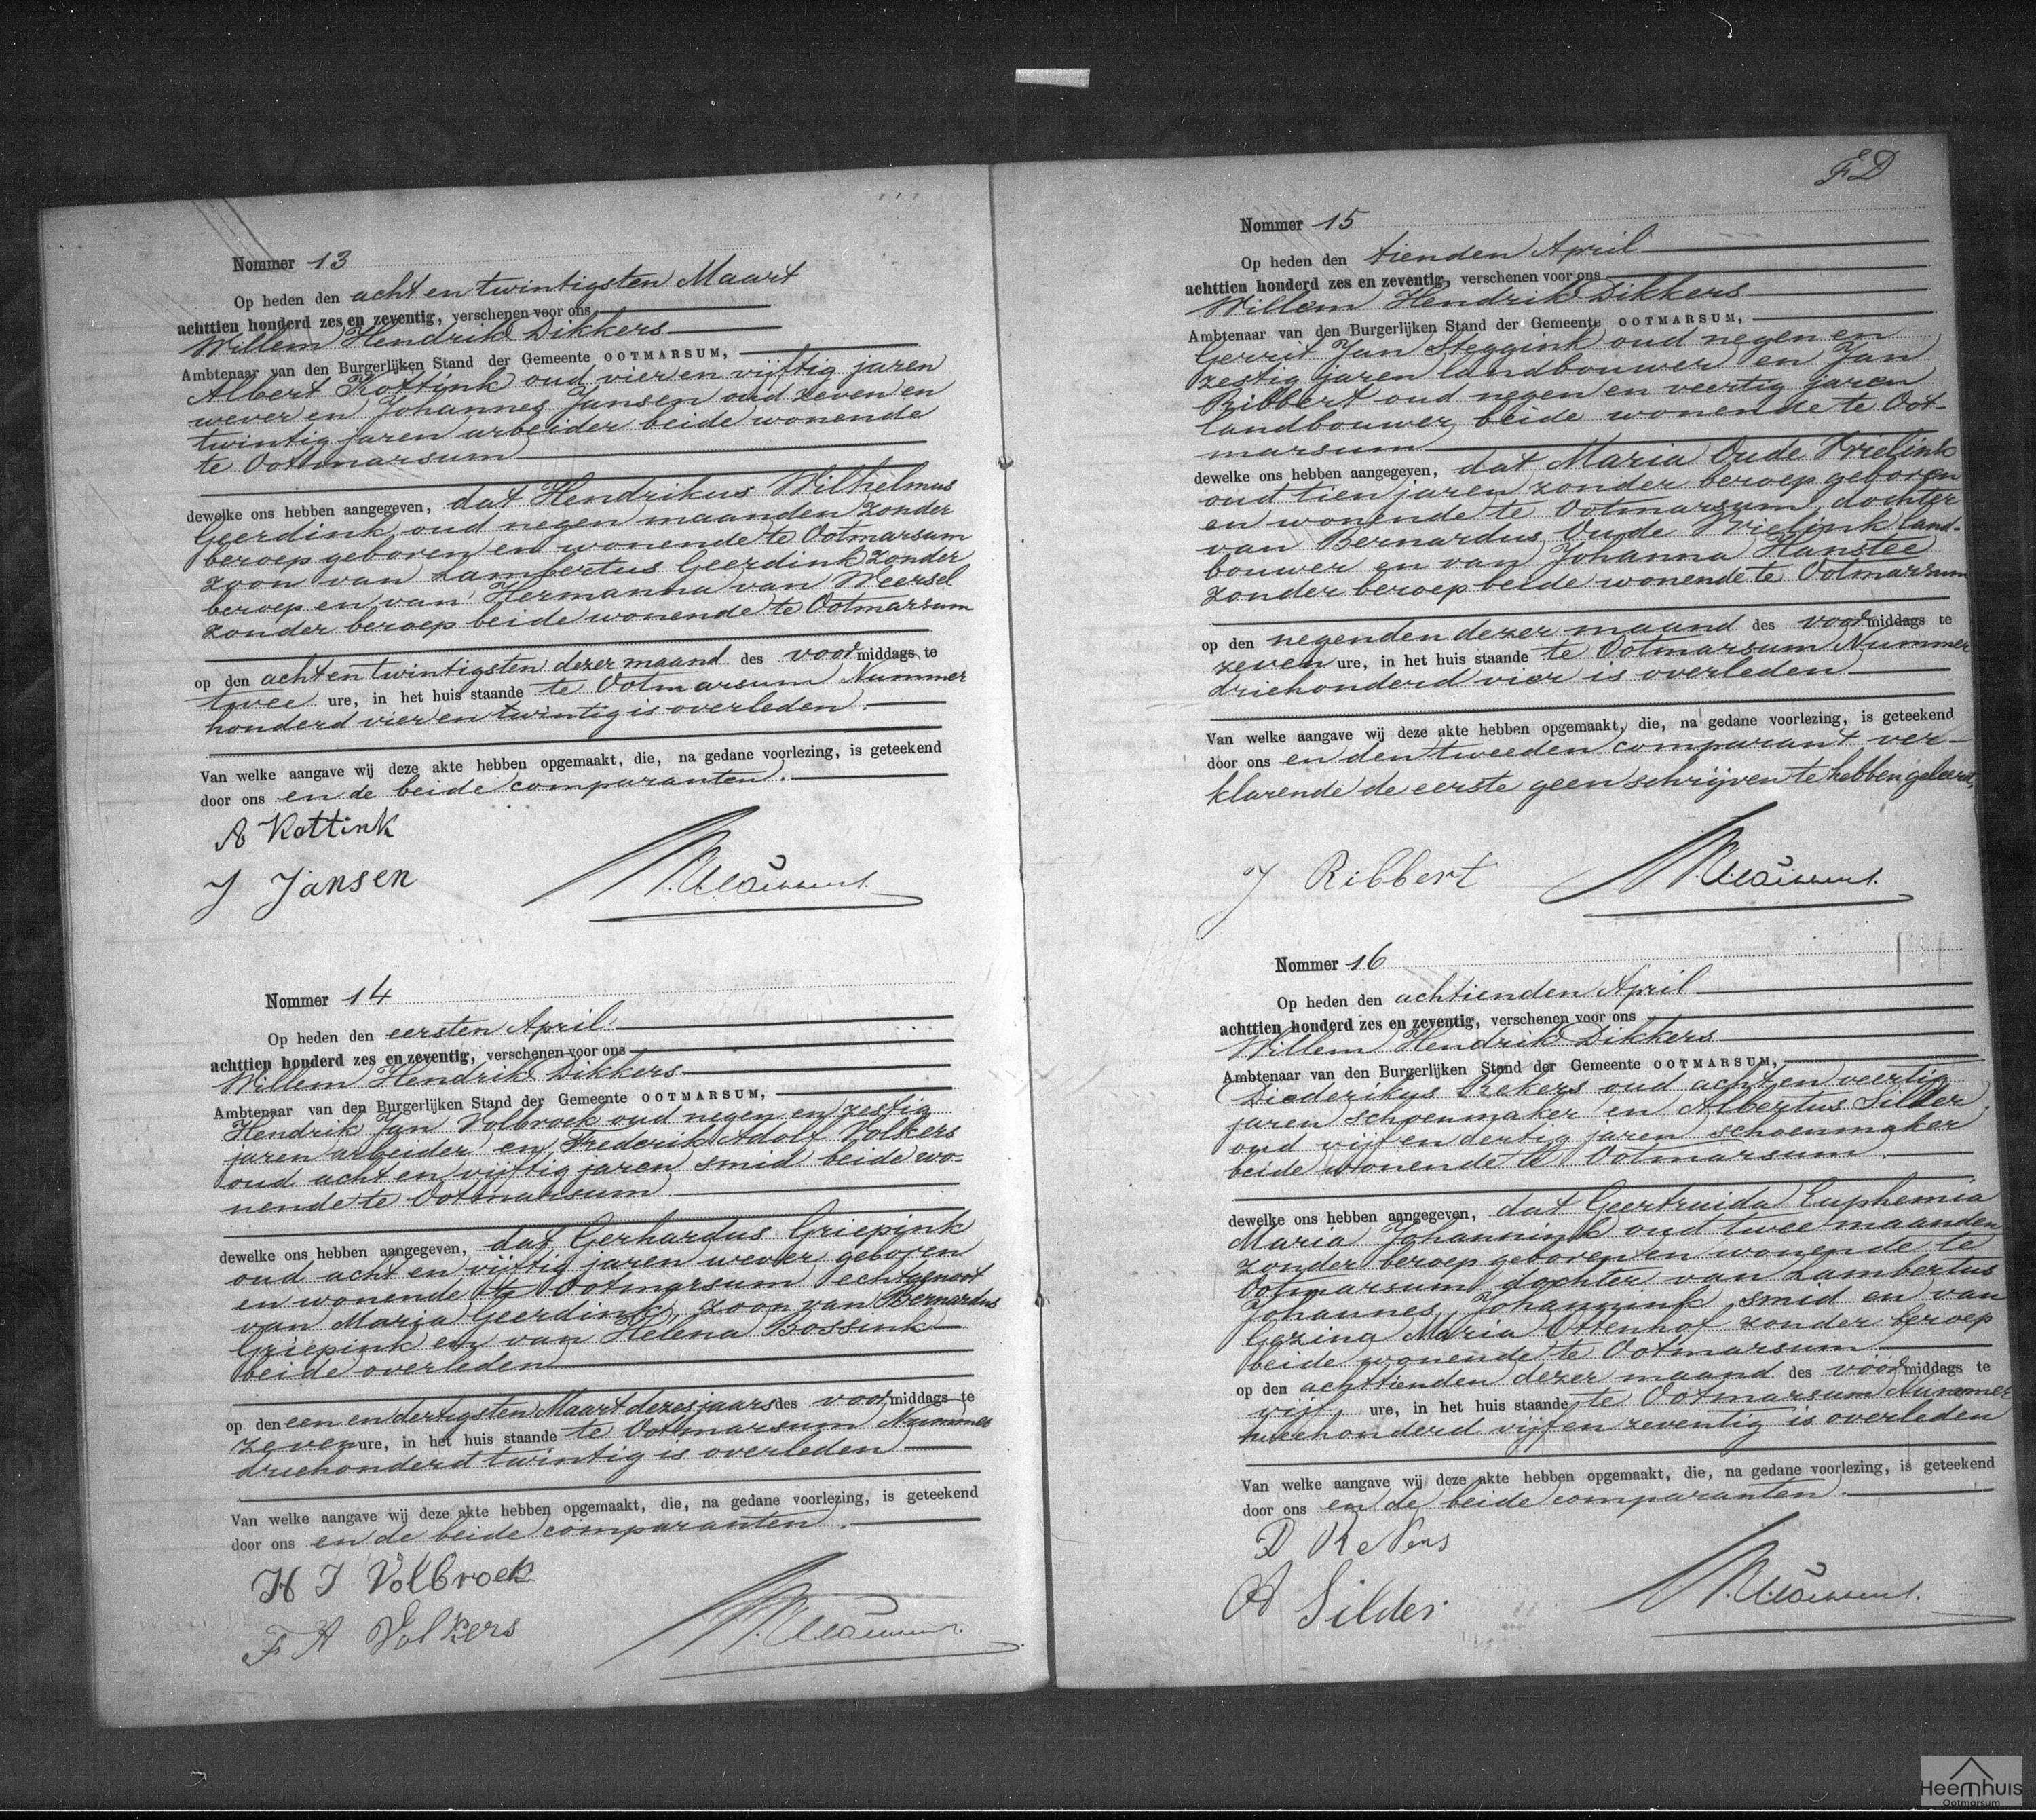 Nommer 13
Op heden den acht en twintigsten Maart
achttien honderd zes en zeventig, verschenen voor ons
Willem Hendrik Dikkers
Ambtenaar van den Burgerlijken Stand der Gemeente OOTMARSUM,
Albert Kottink oud vier en vijftig jaren
wever en Johannes Jansen oud zeven en
twintig jaren arbeider beide wonende
te Ootmarsum
dewelke ons hebben aangegeven, dat Hendrikus Wilhelmus
Geerdink oud negen maanden zonder
beroep geboren en wonende te Ootmarsum
zoon van Lambertus Geerdink zonder
beroep en van Hermanna van Weersel
zonder beroep beide wonende te Ootmarsum
op den acht en twintigsten dezer maand des voormiddags te
twee ure, in het huis staande te Ootmarsum Nummer
honderd vier en twintig is overleden.
Van welke aangave wij deze akte hebben opgemaakt, die, na gedane voorlezing, is geteekend
door ons en de beide comparanten.
A Kottink
J Jansen
Nommer 14
Op heden den eersten April
achttien honderd zes en zeventig, verschenen voor ons
Willem Hendrik Dikkers
Ambtenaar van den Burgerlijken Stand der Gemeente OOTMARSUM,
Hendrik Jan Volbroek oud negen en zestig
jaren arbeider en Frederik Adolf Volkers
oud acht en vijftig jaren smid beide wo-
nende te Ootmarsum
dewelke ons hebben aangegeven, dat Gerhardus Griepink
oud acht en vijftig jaren wever geboren
en wonende te Ootmarsum echtgenoot
van Maria Geerdink, zoon van Bernardus
Griepink en van Helena Bossink
beide overleden
op den een en dertigsten Maart dezes jaars des voormiddags te
zeven ure, in het huis staande te Ootmarsum Nummer
driehonderd twintig is overleden
Van welke aangave wij deze akte hebben opgemaakt, die, na gedane voorlezing, is geteekend
door ons en de beide comparanten.
H J Volbroek
F A Volkers
FD
Nommer 15
Op heden den tienden April
achttien honderd zes en zeventig, verschenen voor ons
Willem Hendrik Dikkers
Ambtenaar van den Burgerlijken Stand der Gemeente OOTMARSUM,
Gerrit Jan Steggink oud negen en
zestig jaren landbouwer en Jan
Ribbert oud negen en veertig jaren
landbouwer beide wonende te Oot-
marsum
dewelke ons hebben aangegeven, dat Maria Oude Vrielink
oud tien jaren zonder beroep geboren
en wonende te Ootmarsum, dochter
van Bernardus Oude Vrielink land-
bouwer en van Johanna Hanstee
zonder beroep beide wonende te Ootmarsum
op den negenden dezer maand des voormiddags te
zeven ure, in het huis staande te Ootmarsum Nummer
driehonderd vier is overleden
Van welke aangave wij deze akte hebben opgemaakt, die, na gedane voorlezing, is geteekend
door ons en den tweeden comparant ver-
klarende de eerste geen schrijven te hebben geleerd.
J Ribbert
Nommer 16
Op heden den achtienden April
achttien honderd zes en zeventig, verschenen voor ons
Willem Hendrik Dikkers
Ambtenaar van den Burgerlijken Stand der Gemeente OOTMARSUM,
Diederikus Rekers oud acht en veertig
jaren schoenmaker en Albertus Silder
oud vijf en dertig jaren schoenmaker
beide wonende te Ootmarsum
dewelke ons hebben aangegeven, dat Geertruida Euphemia
Maria Johannink oud twee maanden
zonder beroep geboren en wonende te
Ootmarsum, dochter van Lambertus
Johannes Johannink smid en van
Gezina Maria Ottenhof zonder beroep
beide wonende te Ootmarsum
op den achttienden dezer maand des voormiddags te
vijf ure, in het huis staande te Ootmarsum Nummer
tweehonderd vijf en zeventig is overleden
Van welke aangave wij deze akte hebben opgemaakt, die, na gedane voorlezing, is geteekend
door ons en de beide comparanten.
D Rekers
A Silder
Heemhuis
Ootmarsum